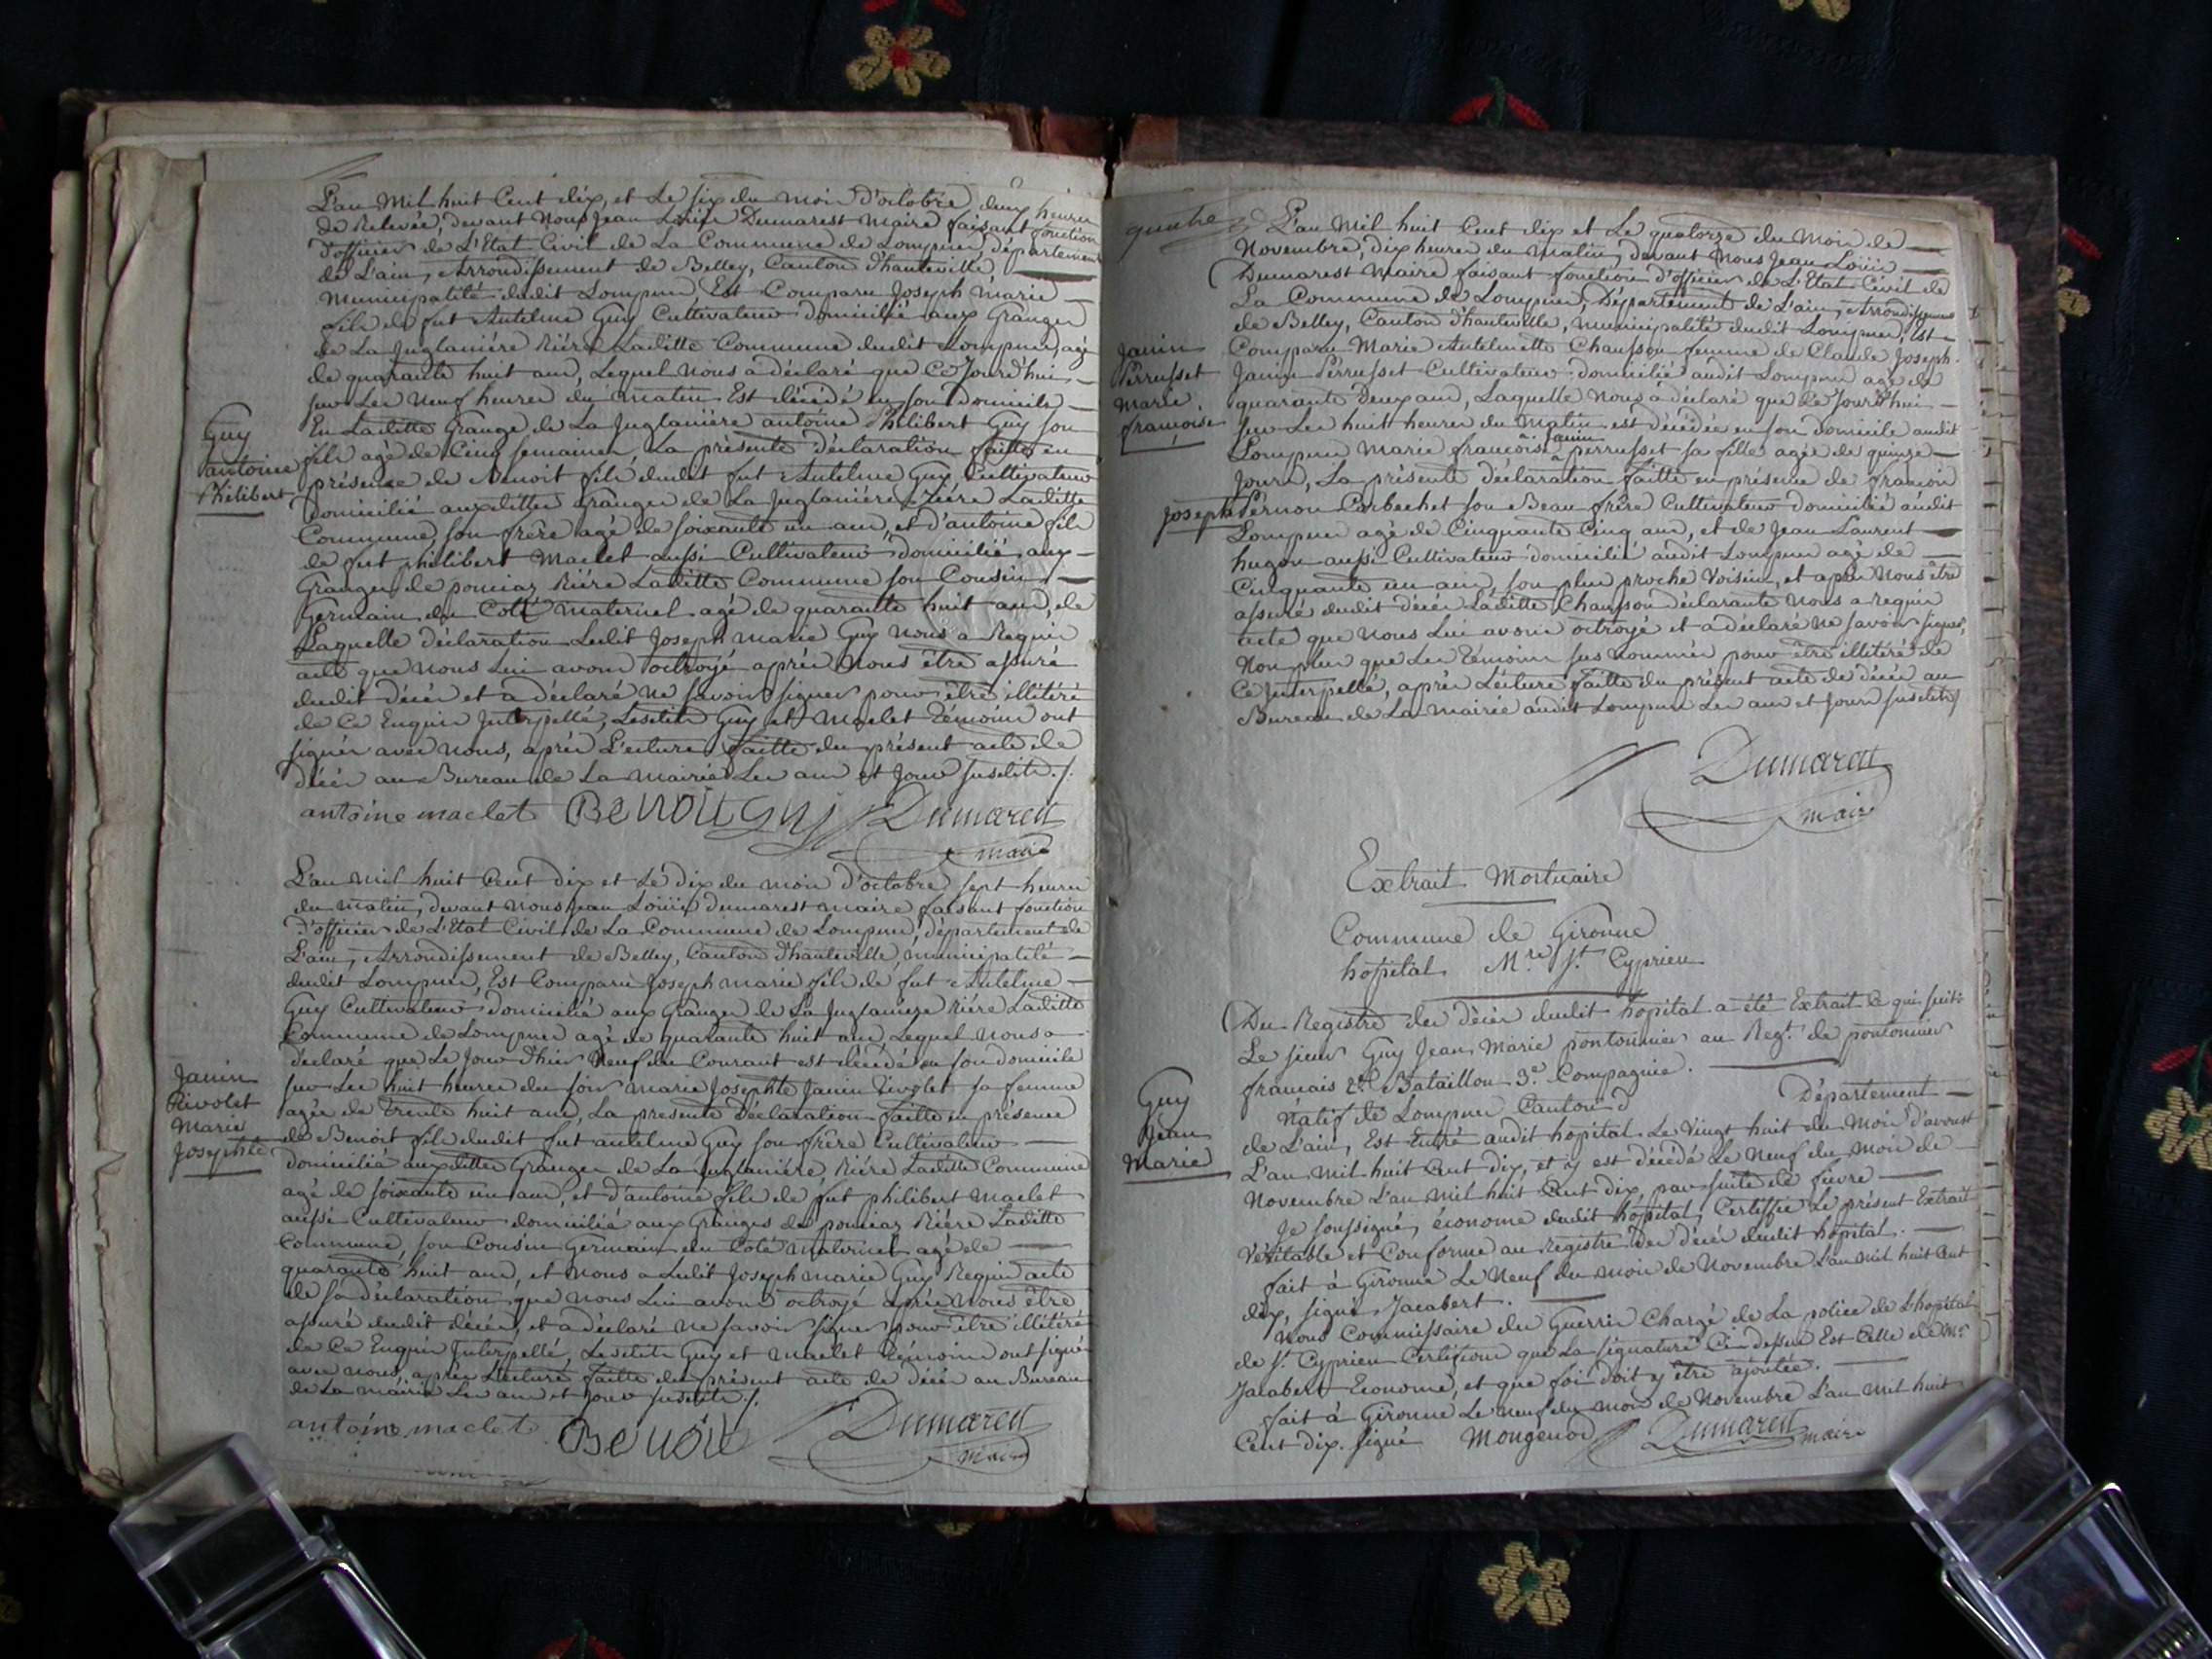 L'an Mil huit Cent dix, et Le six du mois d'octobre, deux heures
de Relevée, devant Nous Jean Louis Dumarest Maire faisant fonction
d'officier de L'Etat Civil de La Commune de Lompnes, département
de L'ain, Arrondissement de Belley, Canton d'hauteville,
Municipalité dudit Lompnes, Est Comparu Joseph Marie
fils de fut Antelme Guy Cultivateur domicilié aux Granges
de La Juglanière Rière Laditte Commune dudit Lompnes, agé
de quarante huit ans, Lequel Nous a déclaré que Ce Jourd'hui
sur Les Neuf heures du matin Est décédé en son domicile
En Laditte Grange de La Juglanière antoine Philibert Guy son
fils agé de Cinq semaines, La présente déclaration faitte en
présence de Benoit fils dudit fut Antelme Guy Cultivateur
domicilié auxdittes Granges de La Juglanière Rière Laditte
Commune, son frère agé de soixante un ans, et d'antoine fils
de fut philibert Maclet aussi Cultivateur domicilié aux
Granges de pomiaz Rière Laditte Commune son Cousin
Germain du Coté Maternel agé de quarante huit ans, de
Laquelle déclaration Ledit Joseph Marie Guy Nous a Requis
acte que Nous Lui avons octroyé après Nous être assuré
dudit décès et a déclaré Ne savoir signer pour être illitéré
de Ce Enquis Interpellé, Lesdits Guy et Maclet Témoins ont
signés avec Nous, après Lecture faitte du présent acte de
décès au Bureau de La Mairie Les an et Jour susdits ./.
antoine maclet Benoit Guy Dumarest
maire
Guy
antoine
Philibert
L'an Mil huit Cent dix et Le dix du mois d'octobre sept heures
du Matin, devant Nous Jean Louis Dumarest Maire faisant fonction
d'officier de L'Etat Civil de La Commune de Lompnes, département de
L'ain, Arrondissement de Belley, Canton d'hauteville, municipalité
dudit Lompnes, Est Comparu Joseph Marie fils de fut Antelme
Guy Cultivateur domicilié aux Granges de La Juglanière Rière Laditte
Commune de Lompnes agé de quarante huit ans, Lequel Nous a
déclaré que Le Jour d'hier Neuf du Courant est décédé en son domicile
sur Les huit heures du soir Marie Josephte Janin Rivolet sa femme
agée de Trente huit ans, La presente déclaration faitte en présence
de Benoit fils dudit fut antelme Guy son frère Cultivateur
domicilié auxdittes Granges de La Juglanière, Rière Laditte Commune
agé de soixante un ans, et d'antoine fils de fut philibert Maclet
aussi Cultivateur domicilié aux Granges de pomiaz Rière Laditte
Commune, son Cousin Germain du Coté Maternel agé de
quarante huit ans, et Nous a Ledit Joseph Marie Guy Requis acte
de sa déclaration que Nous Lui avons octroyé après Nous être
assuré dudit décès, et a déclaré Ne savoir signer pour être illitéré
de Ce Enquis Interpellé, Lesdits Guy et Maclet Témoins ont signé
avec Nous, après Lecture faitte du présent acte de décès au Bureau
de La Mairie Les an et Jour susdits ./.
antoine maclet Benoit Dumarest
maire
Janin
Rivolet
Marie
Josephte
quatre
L'an Mil huit Cent dix et Le quatorze du Mois de
Novembre, dix heures du Matin, devant Nous Jean Louis
Dumarest Maire faisant fonction d'officier de L'Etat Civil de
La Commune de Lompnes, Département de L'ain, Arrondissement
de Belley, Canton d'hauteville, Municipalité dudit Lompnes, Est
Comparu Marie Antelmette Chausson femme de Claude Joseph
Janin Perrusset Cultivateur domicilié audit Lompnes agé de
quarante deux ans, Laquelle Nous a déclaré que Ce Jourd'hui
sur Les huit heures du Matin est décédée en son domicile audit
Janin
Lompnes Marie françoise perrusset sa fille agée de quinze
Jours, La présente déclaration faitte en présence de françois
Joseph Pernon Corbechet son Beau frère Cultivateur domicilié audit
Lompnes agé de Cinquante Cinq ans, et de Jean Laurent
hugon aussi Cultivateur domicilié audit Lompnes agé de
Cinquante un ans, son plus proche Voisin, et après Nous être
assuré dudit décès Laditte Chausson déclarante Nous a requis
acte que Nous Lui avons octroyé et a déclaré Ne savoir signer,
Non plus que Les Témoins sus Nommés pour être illitéré de
Ce Interpellé, après Lecture faitte du présent acte de décès au
Bureau de La Mairie audit Lompnes Les an et Jours susdits
Dumarest
maire
Janin
Perrusset
Marie
françoise
Extrait Mortuaire
Commune de Gironne
hopital M.re St. Cyprien
Du Registre des décès dudit hopital a été Extrait Ce qui suit:
Le sieur Guy Jean Marie pontonnier au Reg.t de pontonniers
francais 2.e Bataillon 3.e Compagnie.
Natif de Lompnes Canton d Département
de L'ain, Est Entré audit hopital Le Vingt huit du Mois d'aoust
L'an Mil huit Cent dix, et y est décédé Le Neuf du Mois de
Novembre L'an Mil huit Cent dix, par suite de fievre
Je soussigné, économe dudit hopital, Certiffie Le présent Extrait
Véritable et Conforme au Registre des décès dudit hopital.
fait à Gironne Le Neuf du mois de Novembre L'an mil huit Cent
dix, signé Jacabert.
Nous Commissaire des Guerres Chargé de La police de L'hopital
de St. Cyprien Certifions que La signature Ci dessus Est Celle de Mr.
Jacabert Econome, et que foi doit y être ajoutée.
fait à Gironne Le Neuf du mois de Novembre L'an Mil huit
Cent dix. signé Mongenod Dumarest maire
Guy
Jean
Marie